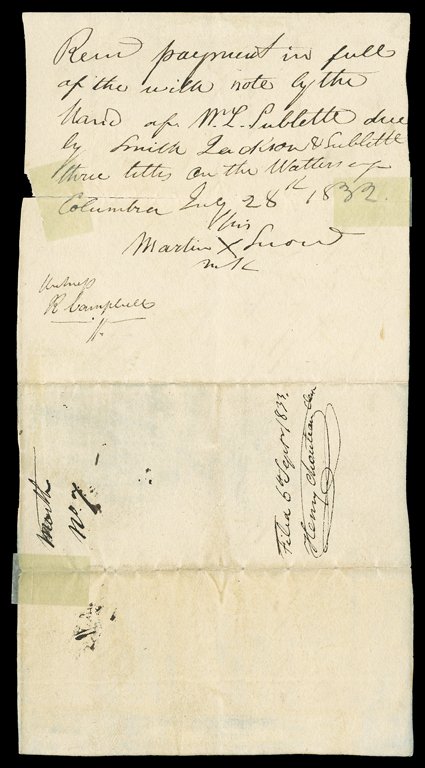 Recvd payment in full
of the with note by the
Hand of W. L. Sublette due
by Smith Jackson & Sublette
three titles on the Watters of
Columbia July 28th 1832
his
Martin X Snow
mk
Witness
R Campbell
Filed 6th Septr 1833
Henry Chouteau Clk
Month
No 7